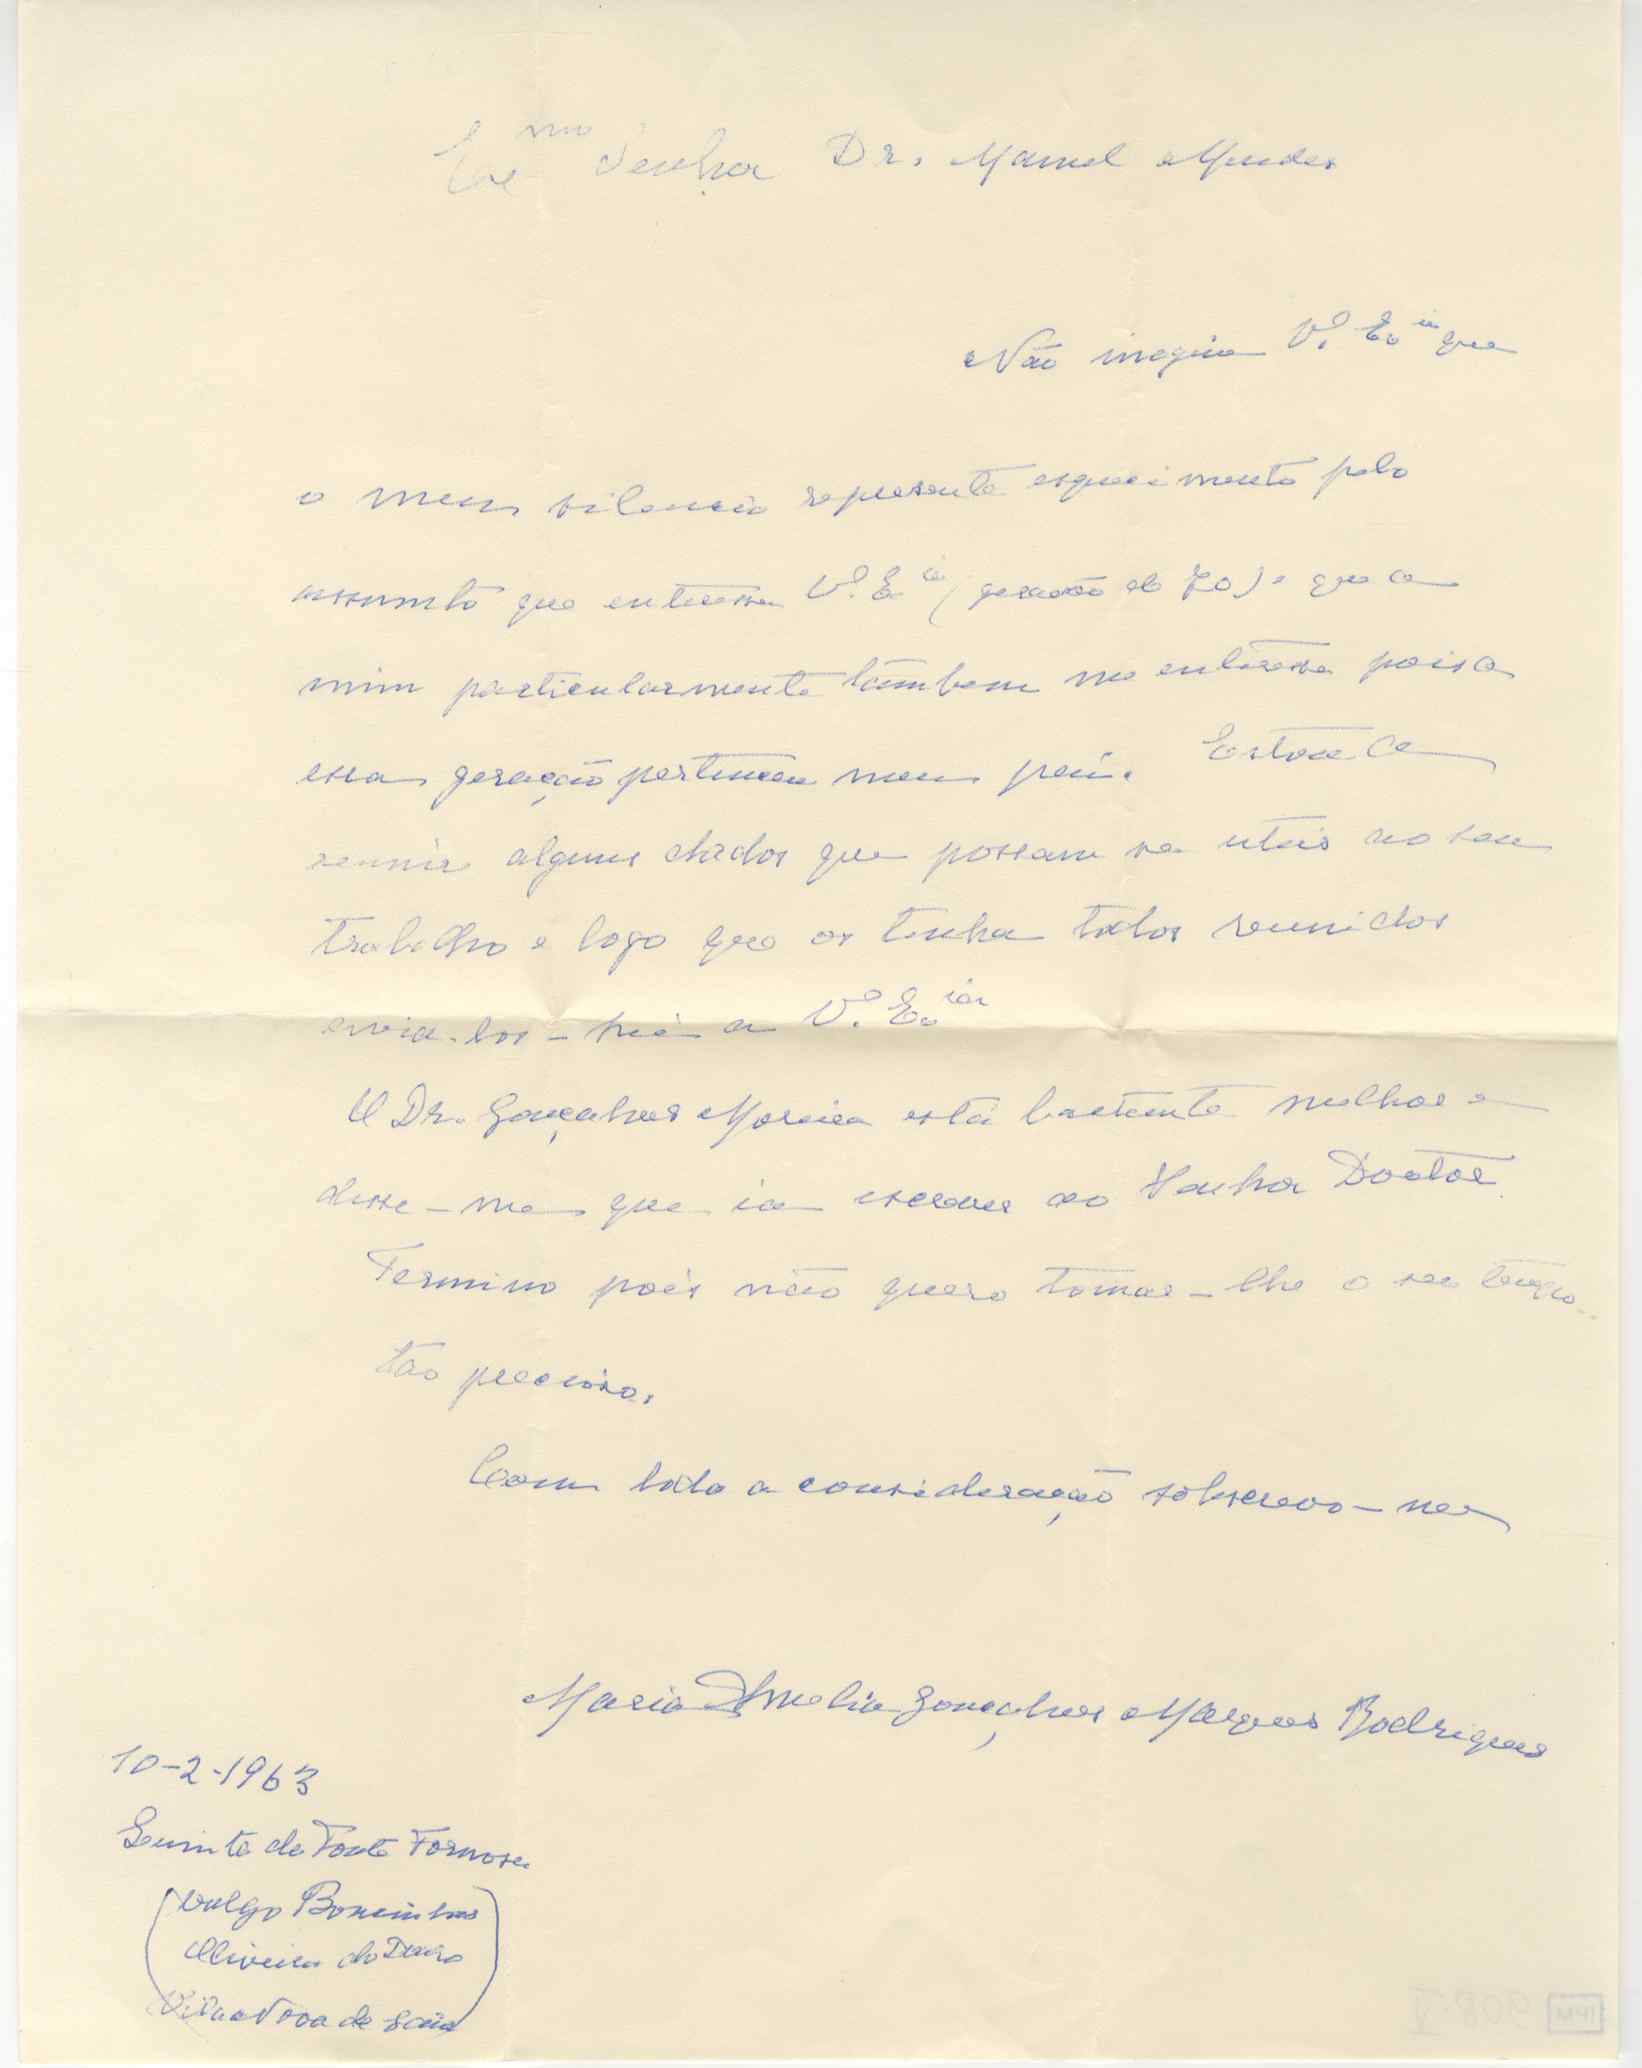 Exmo Senhor Dr. Manuel Mendes
Não imagine V.ª Ex.cia que
o meu silencio represente esquecimento pelo
assumto que enteressa V.ª Ex.cia (geração de 70) e que a
mim particularmente tâmbem me enteressa pois a
essa geração pertenceu meu pai. Estou a
reunir alguns dados que possam ser uteis ao seu
trabalho e logo que os tenha todos reunidos
envia-los-hei a V.ª Ex.cia
O Dr. Gonçalves Moreira está bastante melhor e
disse-me que ia escrever ao Senhor Doutor
Termino pois não quero tomar-lhe o seu tempo
tão precioso.
Com toda a consideração sobscrevo-me
Maria Amelia Gonçalves Marques Rodrigues
10-2-1963
Quinta da Fonte Formosa
(vulgo
Oliveira do Douro
Vila Nova de Gaia)